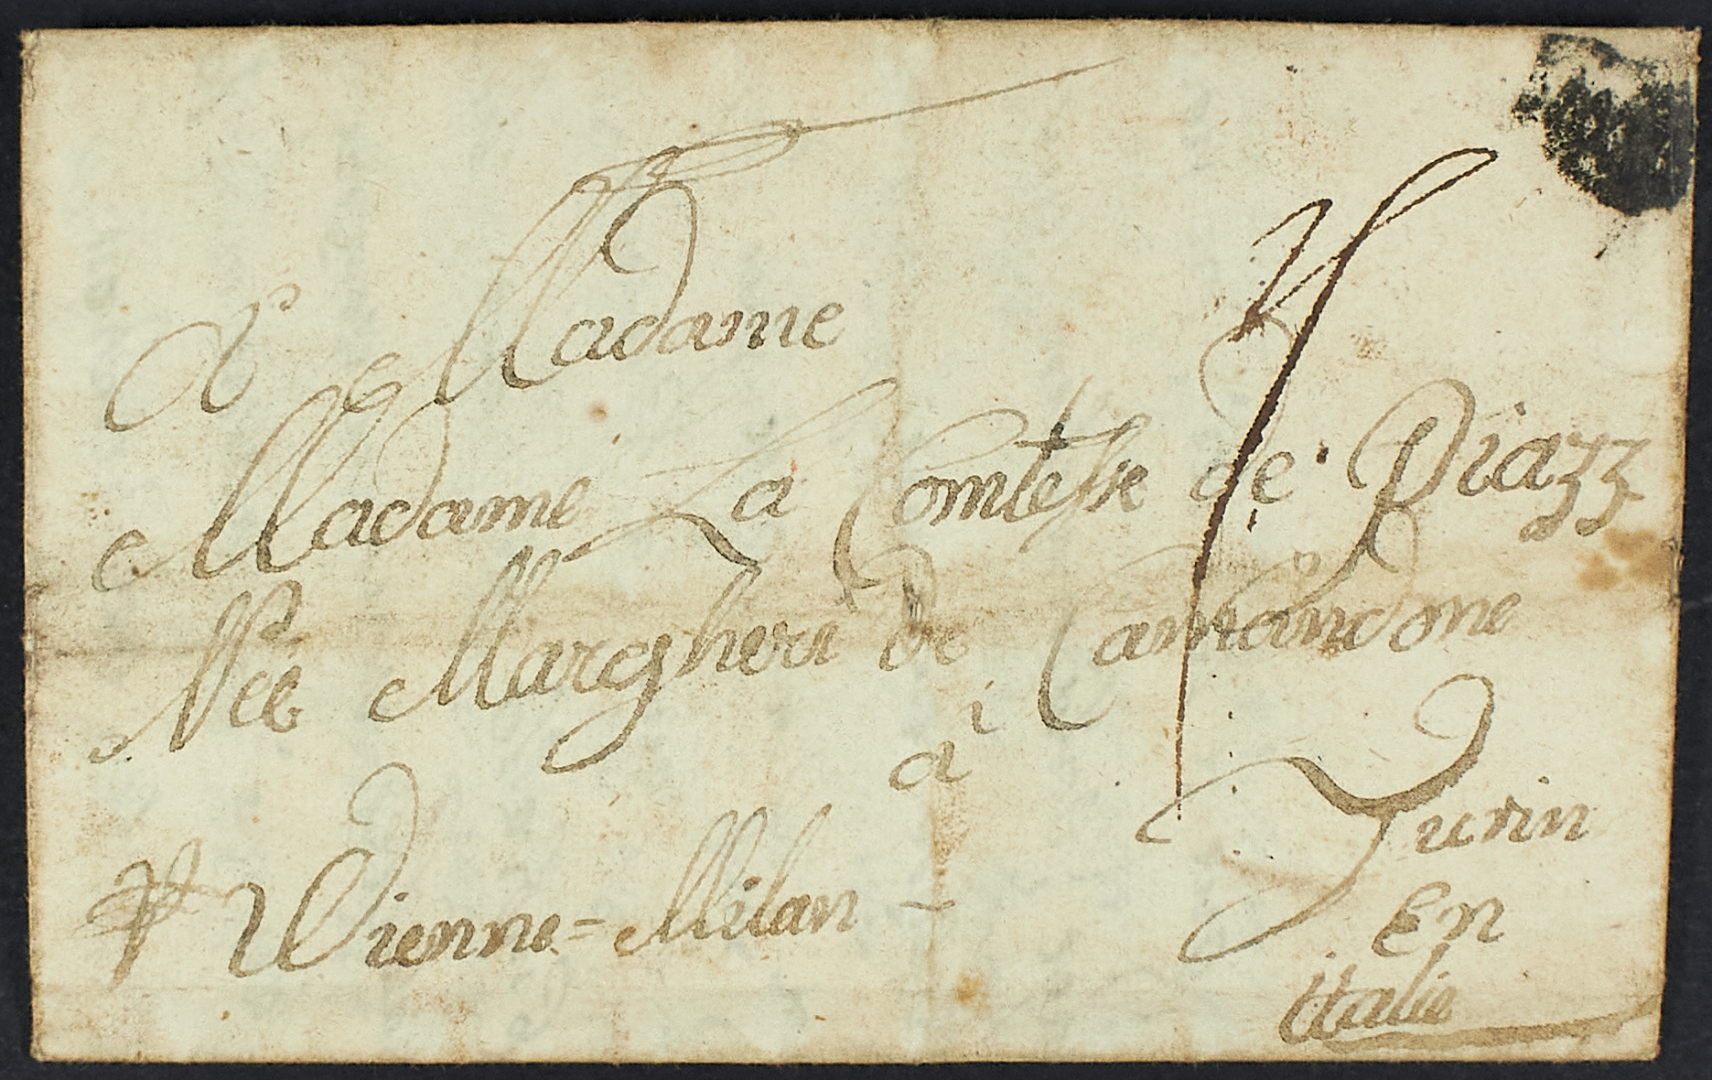 A Madame
Madame La Comtesse de Piazz
Née Margheri de
à
Turin
pr Vienne = Milan -
En
italie